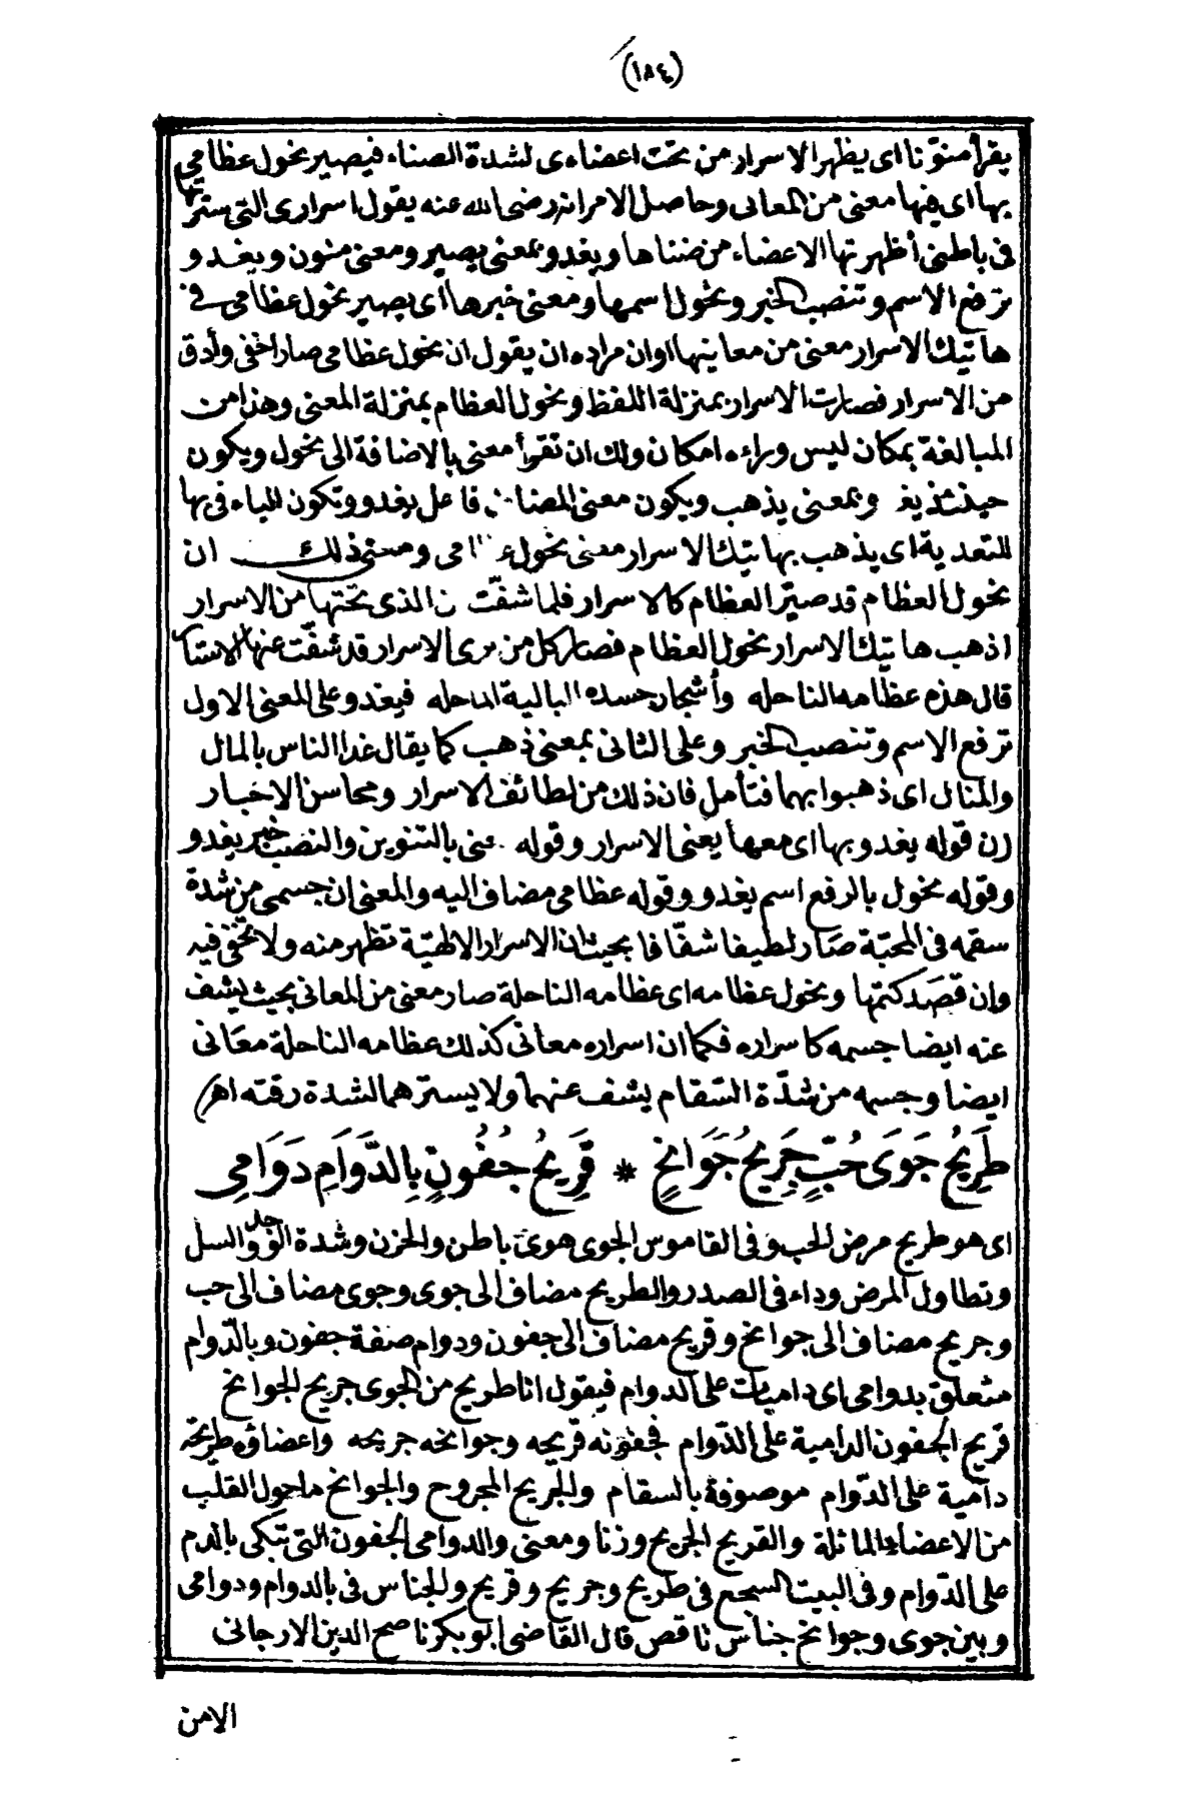 (١٨٤)
يقرأ منوّنا اى يظهر الاسرار من تحت اعضاءى لشدة الضناء فيصير نحول عظامي
بها اى فيها معنى من المعانى وحاصل الامر انه رضى الله عنه يقول اسرارى التى سترتها
فى باطنى أظهرتها الاعضاء من ضناها ويغدو بمعنى يصير ومعنى منون ويغدو
ترفع الاسم وتنصب الخبر ونحول اسمها ومعنى خبرها اى يصير نحول عظامى فى
هاتيك الاسرار معنى من معانيها وان مراده ان يقول ان نحول عظامى صار اخفى وأدق
من الاسرار فصارت الاسرار بمنزلة اللفظ ونحول العظام بمنزلة المعنى وهذا من
المبالغة بمكان ليس وراءه امكان ولك ان تقرأ معنى بالاضافة الى نحول ويكون
حينئذ يغدو بمعنى يذهب ويكون معنى المضاف فاعل يغدو وتكون الباء فى بها
للتعدية اى يذهب بهاتيك الاسرار معنى نحول عظامى ومعنى ذلك ان
نحول العظام قد صيّر العظام كالاسرار فلما شفّت عن الذى تحتها من الاسرار
اذهب هاتيك الاسرار نحول العظام فصار كل من يرى الاسرار قد شفّت عنها الاستار
قال هذه عظامه الناحله وأشجار جسده البالية الماحله فيغدو على المعنى الاول
ترفع الاسم وتنصب الخبر وعلى الثانى بمعنى ذهب كما يقال غدا الناس بالمال
والمنال اى ذهبوا بهما فتأمل فان ذلك من لطائف الاسرار ومحاسن الاخبار
(ن قوله يغدو بها اى معها يعنى الاسرار وقوله معنى بالتنوين والنصب خبر يغدو
وقوله نحول بالرفع اسم يغدو وقوله عظامى مضاف اليه والمعنى ان جسمى من شدة
سقمه فى المحبّة صَار لطيفا شفّافا بحيث ان الاسرار الالهيّة تظهر منه ولا تخفى فيه
وان قصَد كتمها ونحول عظامه اى عظامه الناحلة صار معنى من المعانى بحيث يشف
عنه ايضا جسمه كاسراره فكما ان اسراره معانى كذلك عظامه الناحلة معَانى
ايضا وجسمه من شدّة السّقام يشف عنهما ولا يسترهما لشدة رقته اهـ)
طَرِيحُ جَوَى حُبٍّ جَرِيحُ جَوَانِحٍ * قَرِيحُ جُفُونٍ بِالدَّوَامِ دَوَامِى
اى هو طريح مرض الحب وفى القاموس الجوى هوىً باطن والحزن وشدة الوجد والسل
وتطاول المرض وداء فى الصدر والطريح مضاف الى جوى وجوى مضاف الى حب
وجريح مضاف الى جوانح وقريح مضاف الى جفون ودوام صفة جفون وبالدّوام
متعلق بدوامى اى داميات على الدوام فيقول انا طريح من الجوى جريح الجوانح
قريح الجفون الدامية على الدّوام فجفونه قريحه وجوانحه جريحه واعضاؤه طريحة
دامية على الدّوام موصوفة بالسقام والجريح المجروح والجوانح ماحول القلب
من الاعضاء المائلة والقريح الجريح وزنا ومعنى والدوامى الجفون التى تبكى بالدم
على الدّوام وفى البيت السجع فى طريح وجريح وقريح والجناس فى بالدوام ودوامى
وبين جوى وجوانح جناس ناقص قال القاضى ابو بكر ناصح الدين الارجانى
الامن